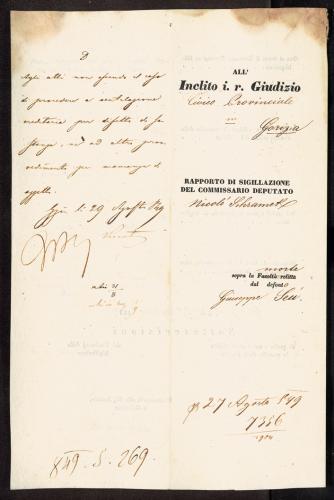 Agli atti non essendo il caso
di procedere a ventilazione
ereditaria per difetto di so
stanza, nè ad altro prov
vedimento per mancanza di
oggetti.
29 Agosto 849
ALL'
Inclito i. r. Giudizio
Civico Provinciale
in
Gorizia
RAPPORTO DI SIGILLAZIONE
DEL COMMISSARIO DEPUTATO
Nicolò Schrameth
morte
sopra la Facoltà relitta
dal defonto
Giuseppe
27 Agosto 849
7356
X 49. S. 269.